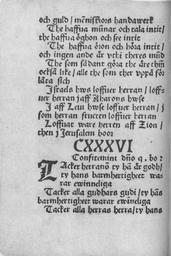 och guld / menniskios handawerk
The haffua munar och tala intit /
the haffua öghon och see intit
The haffua öron och höra intit /
och ingen ande är vti theres mūd
The som sådant göra the äre them
också like / alle the som ther vppå förlåta sich
Israels hws loffuer herran / loffuer herran jaff Aarons hwse
J aff Leui hwse loffuer herran / j som herran fructen loffuer herran
Loffuat ware herren aff Zion /
then j Jerusalem boor
CXXXVI
Confitemini dño q. bo:
Tacker herranō ty hā är godh /
ty hans barmhertigheet warar ewinneliga
Tacker alla gudhars gudi / ty hās
barmhertigheet warar ewinneliga
Tacker alla herras herra / ty hans